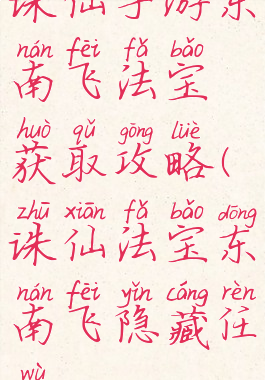 诛仙手游东
nán fēi fǎ bǎo
南飞法宝
huò qǔ gōng lüè
获取攻略(
zhū xiān fǎ bǎo dōng
诛仙法宝东
nán fēi yǐn cáng rèn
南飞隐藏任
wù